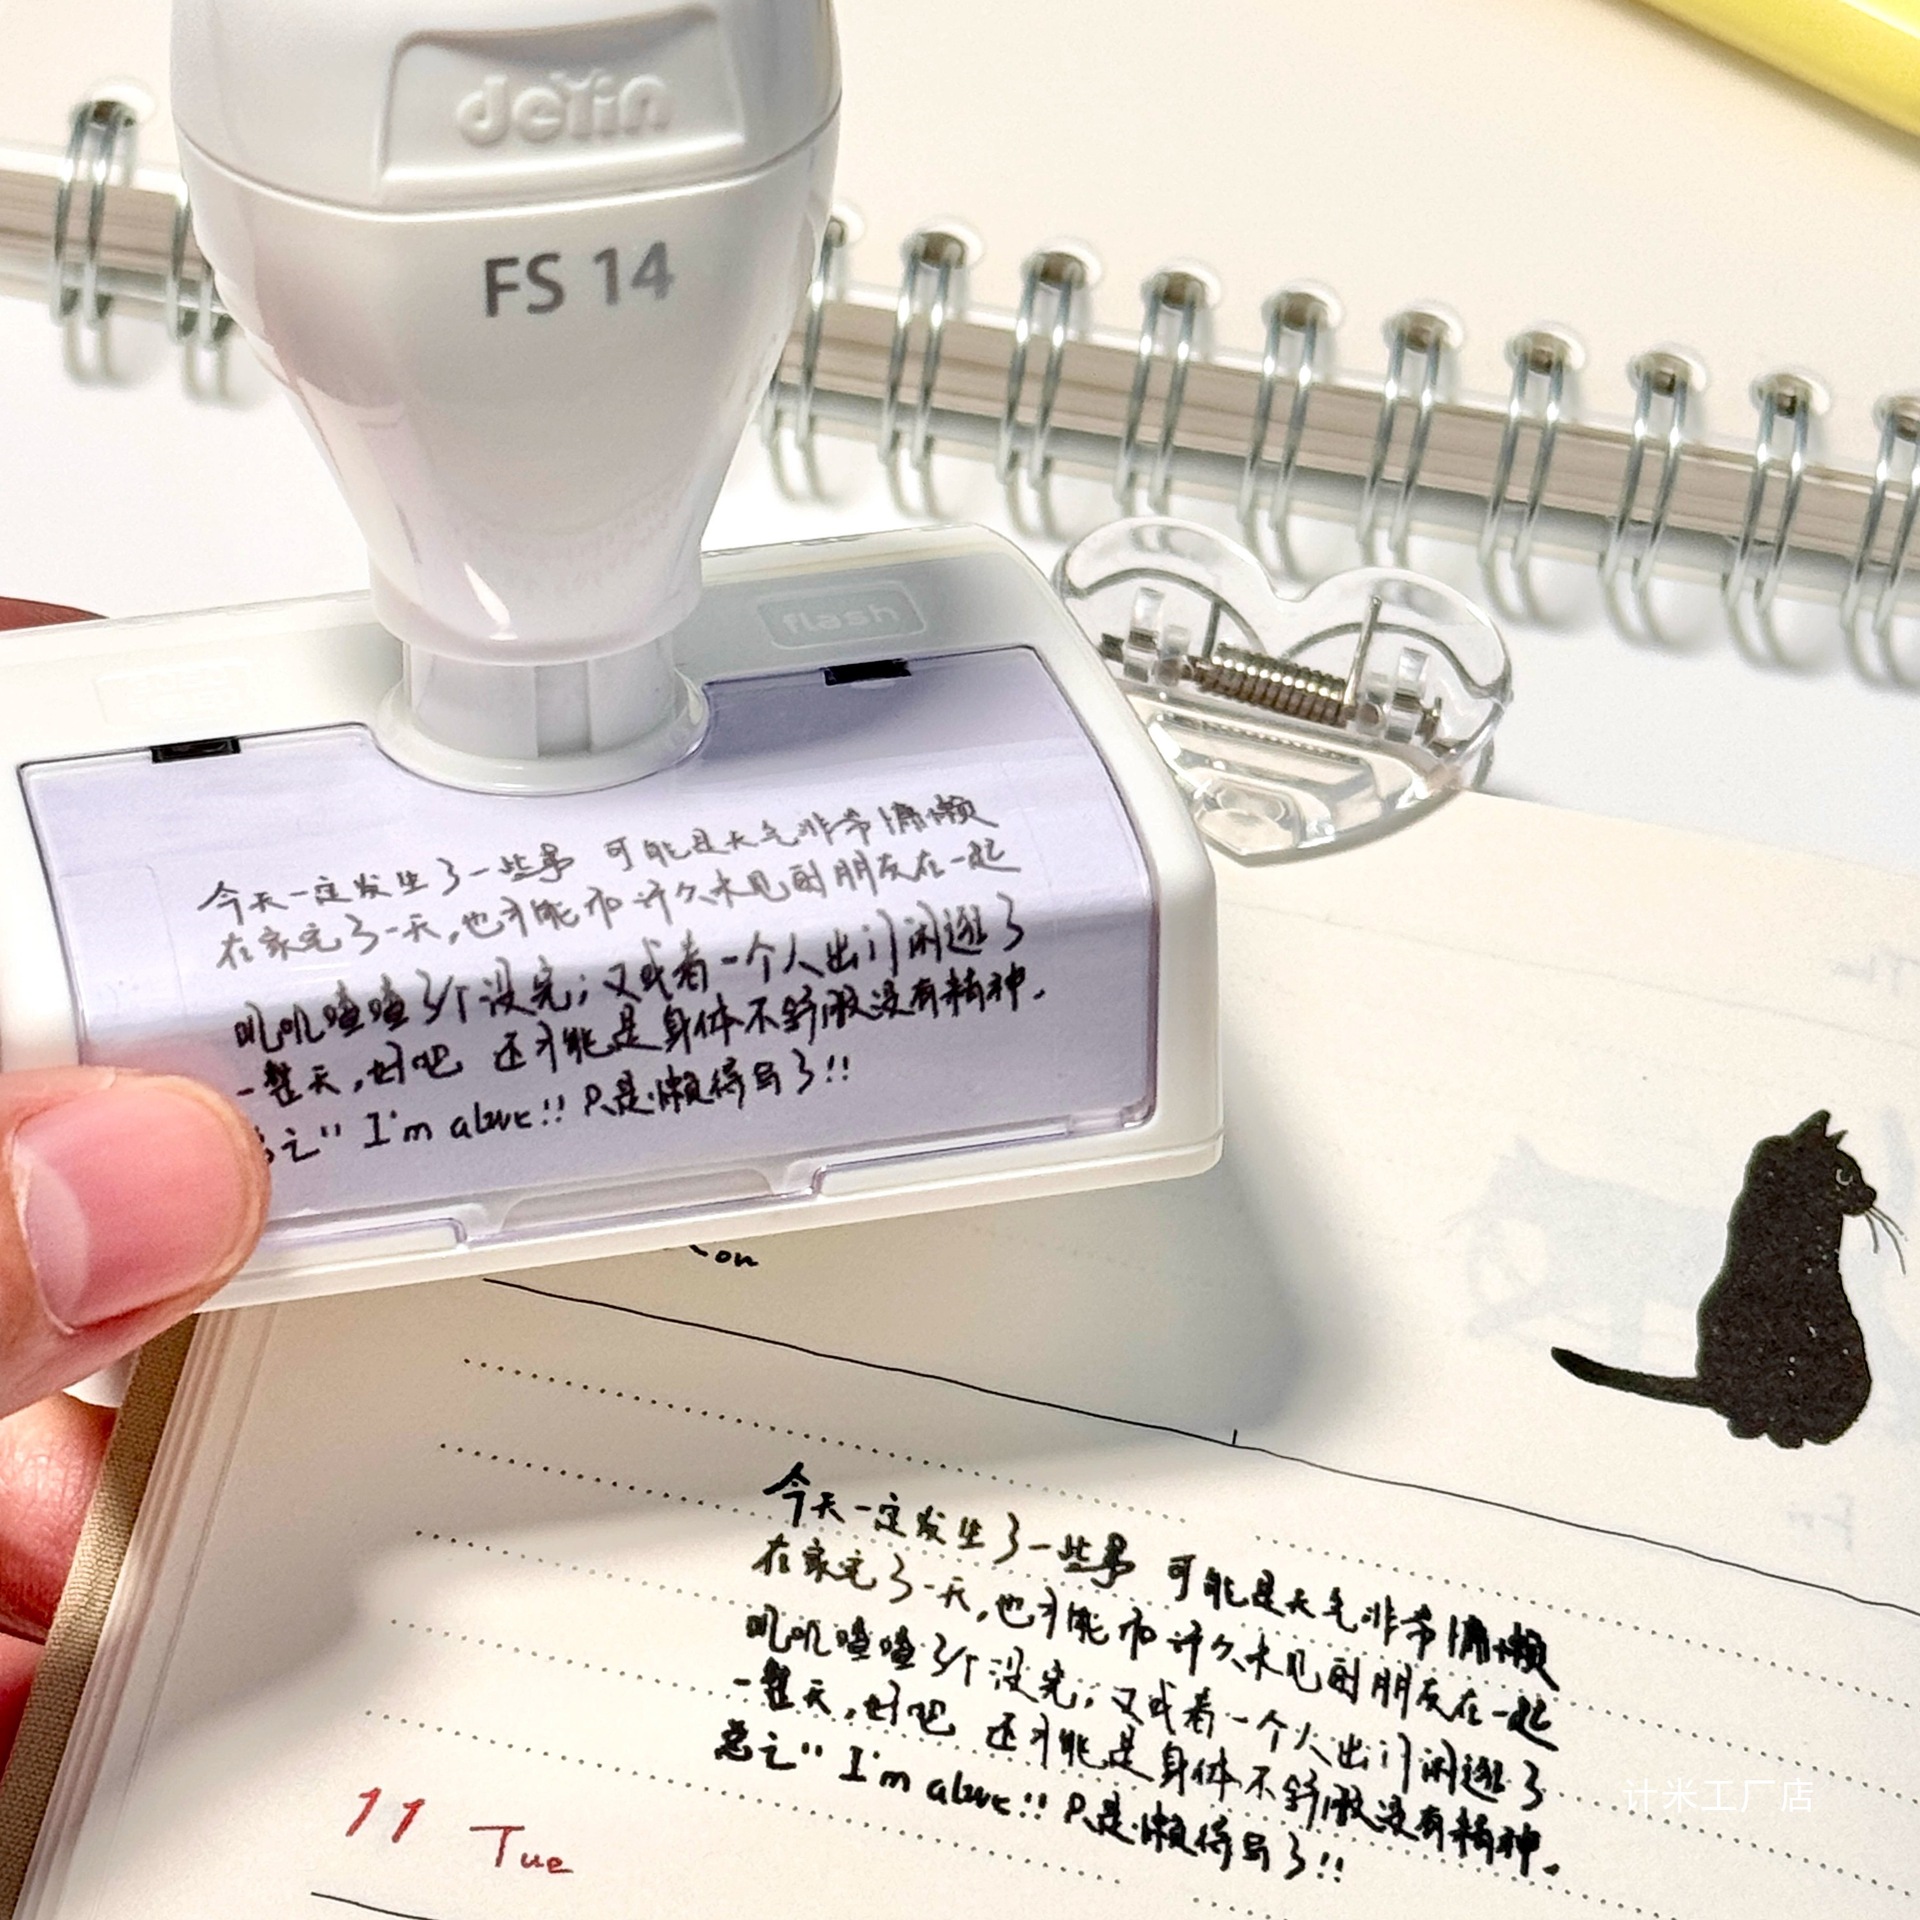 deYin
FS 14
flash
今天一定发生了一些事 可能是天气非常慵懒
在家宅了一天,也可能和许久未见的朋友在一起
叽叽喳喳了个没完;又或者一个人出门闲逛了
一整天,好吧 还可能是身体不舒服没有精神.
总之" I'm alive!! 只是懒得写了!!
on
今天一定发生了一些事 可能是天气非常慵懒
在家宅了一天,也可能和许久未见的朋友在一起
叽叽喳喳了个没完;又或者一个人出门闲逛了
一整天,好吧 还可能是身体不舒服没有精神.
总之" I'm alive!! 只是懒得写了!!
11 Tue
计米工厂店